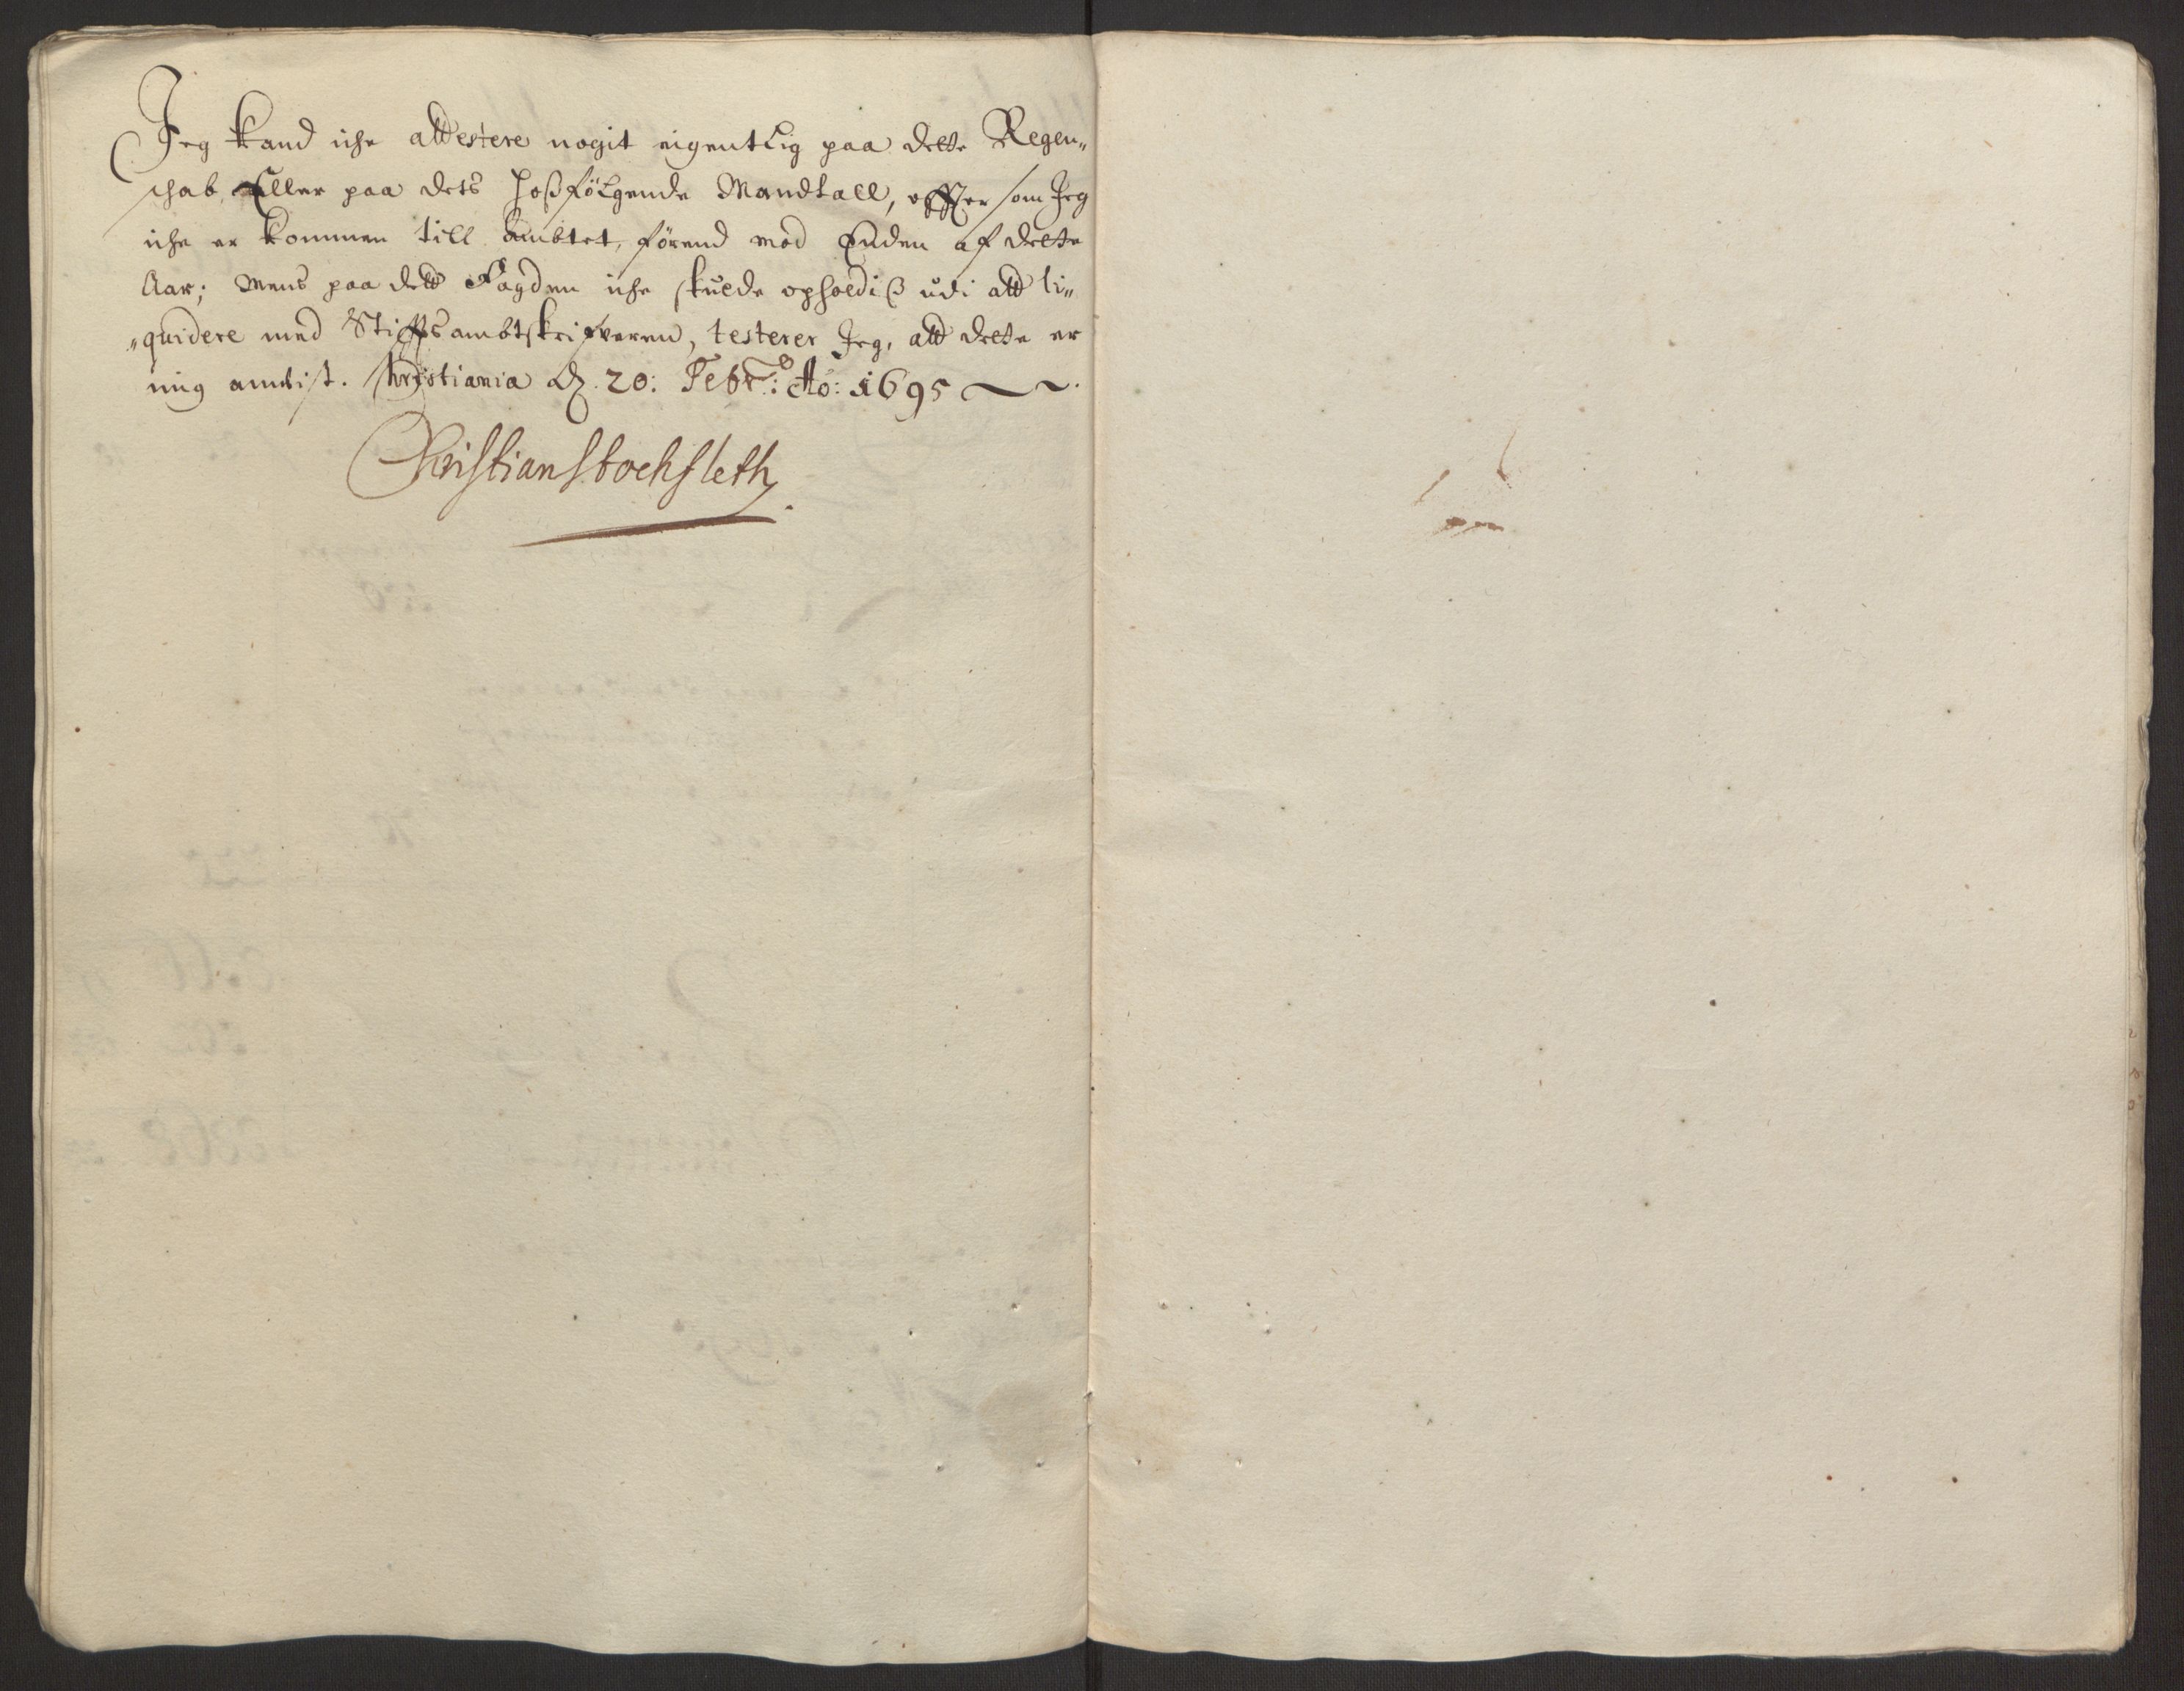 Jeg kand iche attestere nogit eigentlig paa dette Regen„
schab Eller paa dets hoßfölgende Mandtall, effter som Jeg
iche er kommen till Ambtet, förend mod Enden af dette
Aar; Mens paa dett Fogden iche skulde opholdiß udi att li„
„quidere med Stiftsambtskrifveren, testerer Jeg, att dette er
mig anvist. Christiania d. 20: Febr: Ao: 1695
Christian Stochfleth